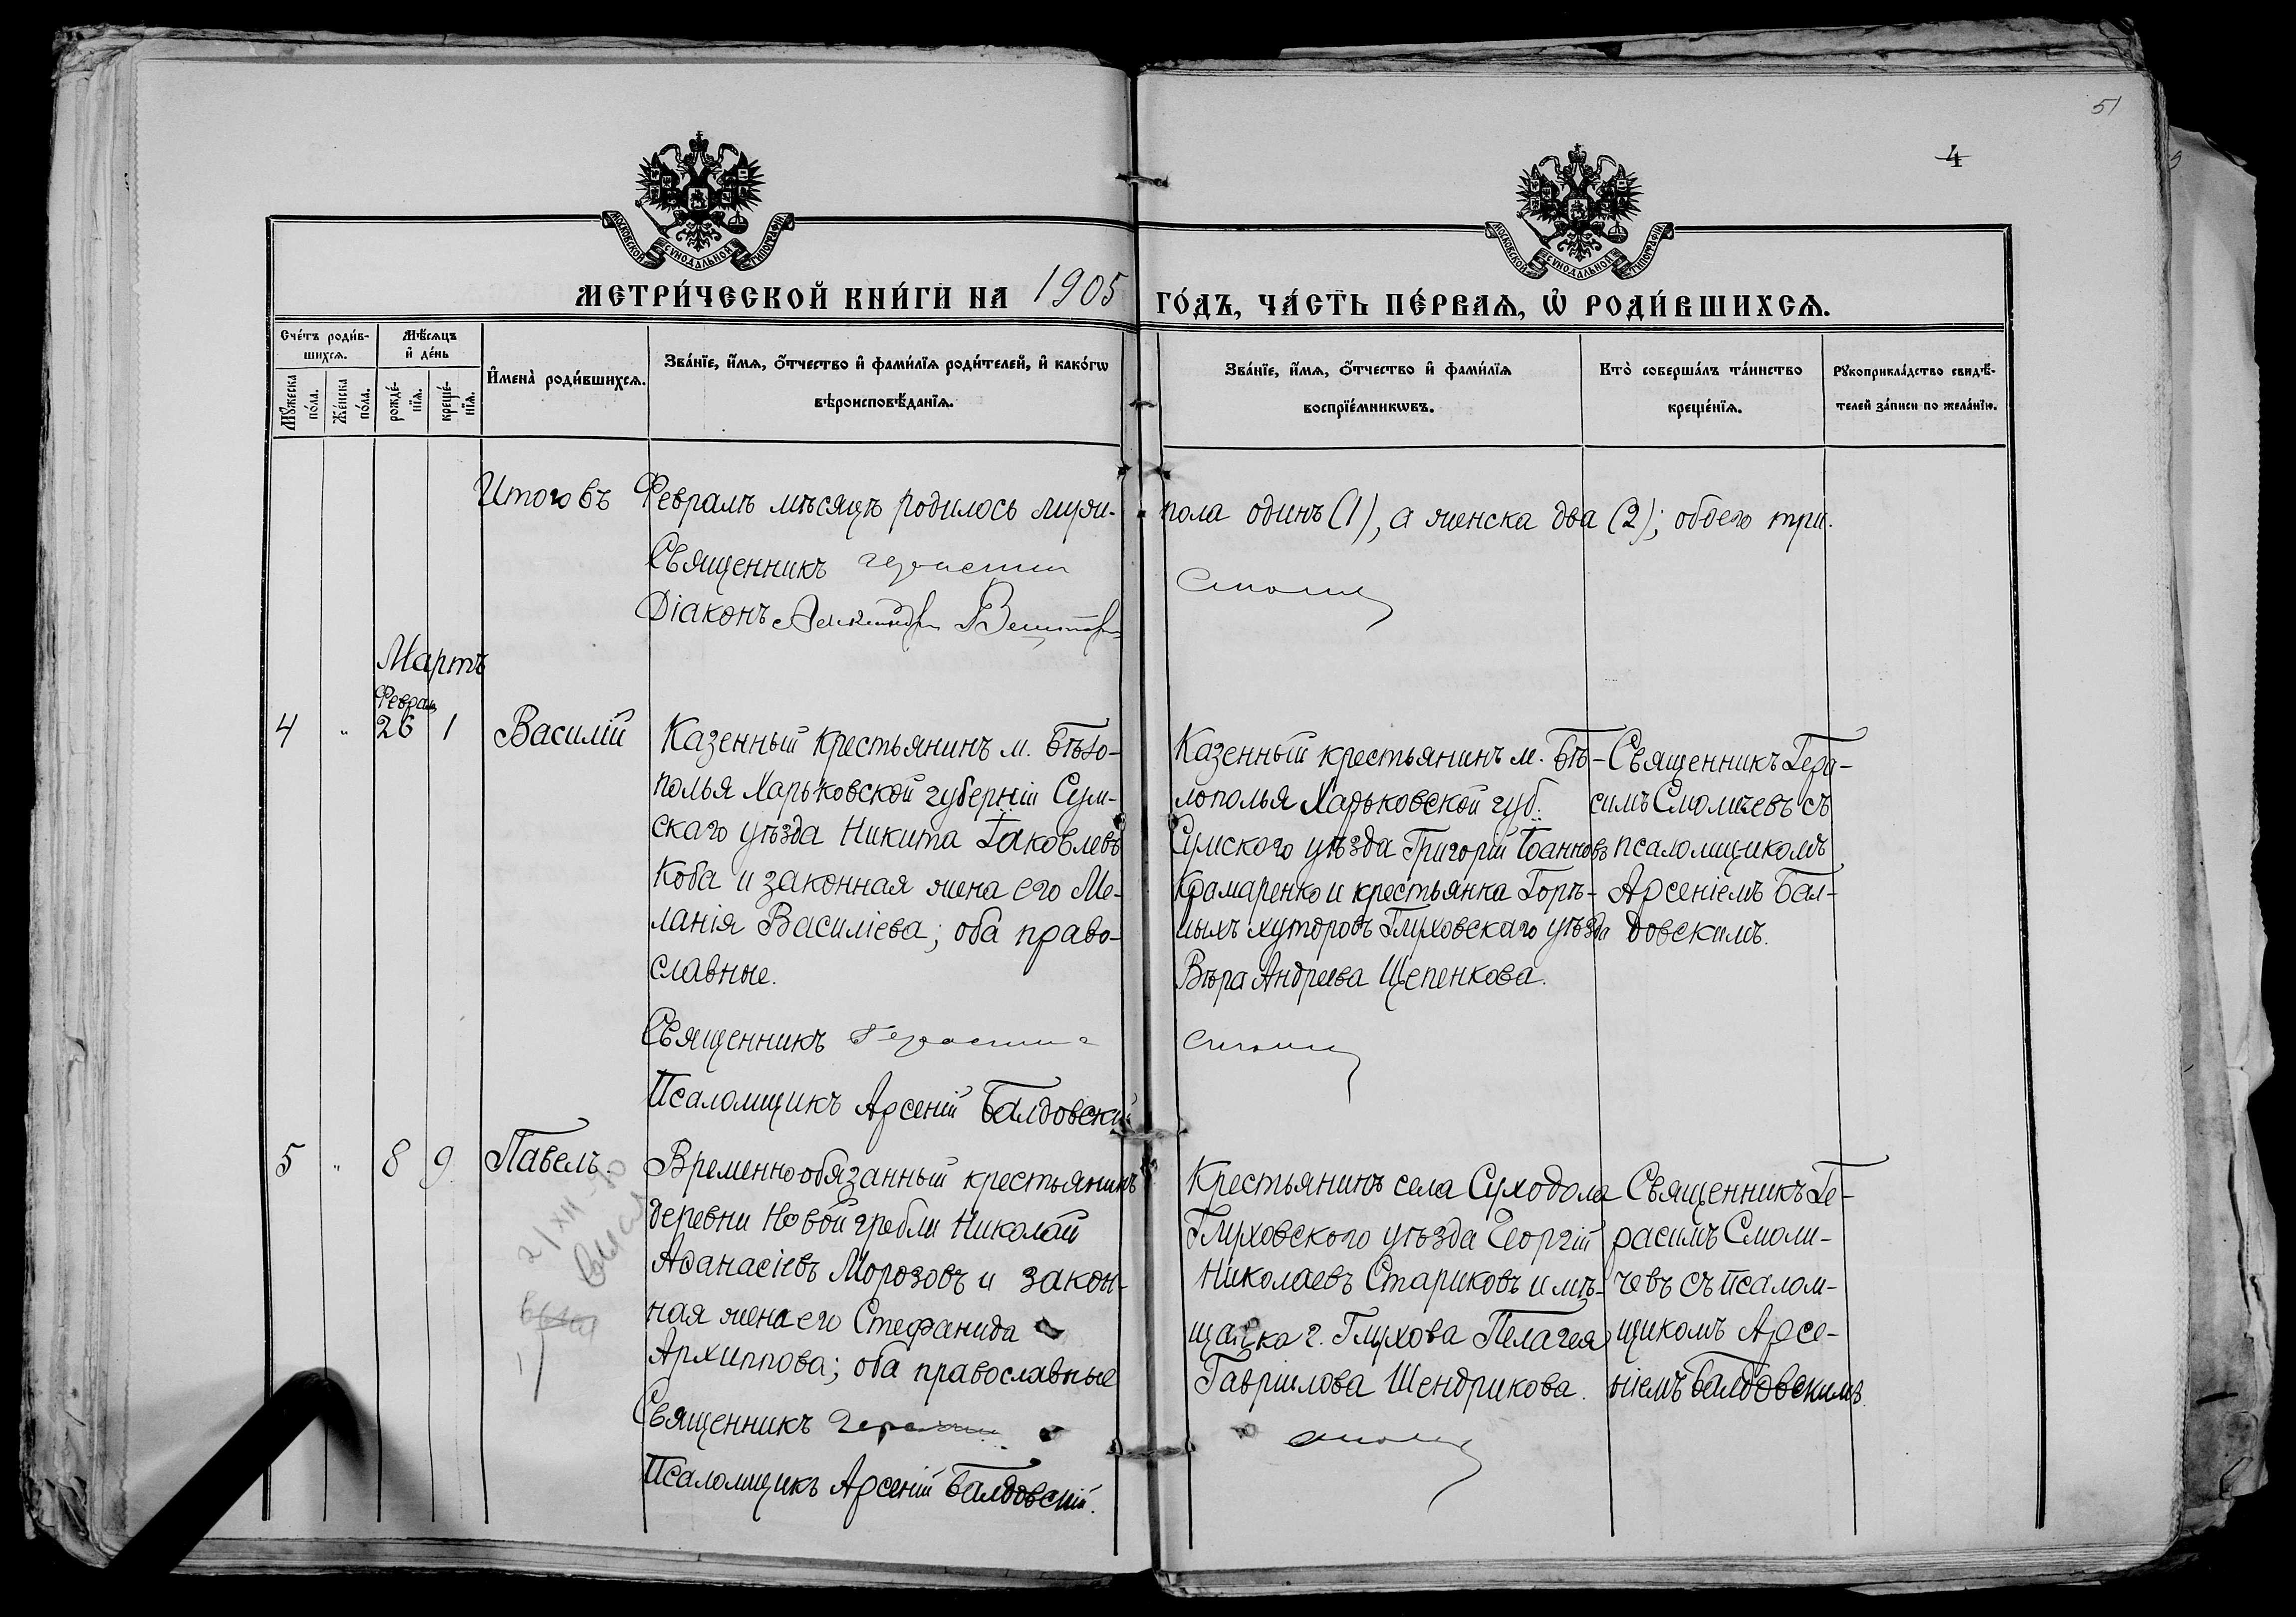 51
4
МОСКОВСКОЙ СѴНОДАЛЬНОЙ ТИПОГРАФІИ
МОСКОВСКОЙ СѴНОДАЛЬНОЙ ТИПОГРАФІИ
МЕТРИ́ЧЕСКОЙ КНИ́ГИ НА 1905 ГО́ДЪ, ЧА́СТЬ ПЕ́РВАѦ, Ѡ҆ РОДИ́ВШИХСѦ.
Сче́тъ роди́в-
шихсѧ.
Мѣ́сѧцъ
и҆ де́нь
Мꙋ́жеска
по́ла.
Же́нска
по́ла.
рожде́-
нїѧ.
креще́-
нїѧ.
И҆мена̀ роди́вшихсѧ.
Зва́нїе, и҆́мѧ, ѻ҆́тчество и҆ фами́лїѧ роди́телей, и҆ како́гѡ
вѣроисповѣ́данїѧ.
Зва́нїе, и҆́мѧ, ѻ҆́тчество и҆ фами́лїѧ
воспрїе́мникѡвъ.
Кто̀ соверша́лъ та́инство
креще́нїѧ.
Рꙋкоприкла́дство свидѣ́-
телей за́писи по жела́нїю.
Итого въ Февралѣ мѣсяцѣ родилось муж. пола одинъ (1), а женска два (2); обоего три.
Священникъ Герасимъ
Діаконъ Александръ
Мартъ
Феврал
4 „ 26 1 Василій
Казенный крестьянинъ м. Бѣло-
полья Харьковской губерніи Сум-
скаго уѣзда Никита Іаковлевъ
Коба и законная жена его Ме-
ланія Василіева; оба право-
славные.
Казенный крестьянинъ м. Бѣ-
лополья Харьковской губ.
Сумского уѣзда Григорій Іоанновъ
Крамаренко и крестьянка Горѣ-
лыхъ хуторовъ Глуховскаго уѣзда
Вѣра Андреева Щепенкова.
Священникъ Гера-
симъ Смоличевъ съ
псаломщикомъ
Арсеніемъ Бал-
довскимъ.
Священникъ Герасимъ
Псаломщикъ Арсеній Балдовскій
5 „ 8 9 Павелъ
21 XII-80
Временнообязанный крестьянинъ
деревни Новой гребли Николай
Аѳанасіевъ Морозовъ и закон-
ная жена его Стефанида
Архиппова; оба православные
Крестьянинъ села Суходола
Глуховского уѣзда Георгій
Николаевъ Стариковъ и мѣ-
щанка г. Глухова Пелагея
Гавріилова Шендрикова.
Священникъ Ге-
расимъ Смоли-
чевъ съ псалом-
щикомъ Арсе-
ніемъ Балдовскимъ.
Священникъ Герасимъ
Псаломщикъ Арсеній Балдовскій.